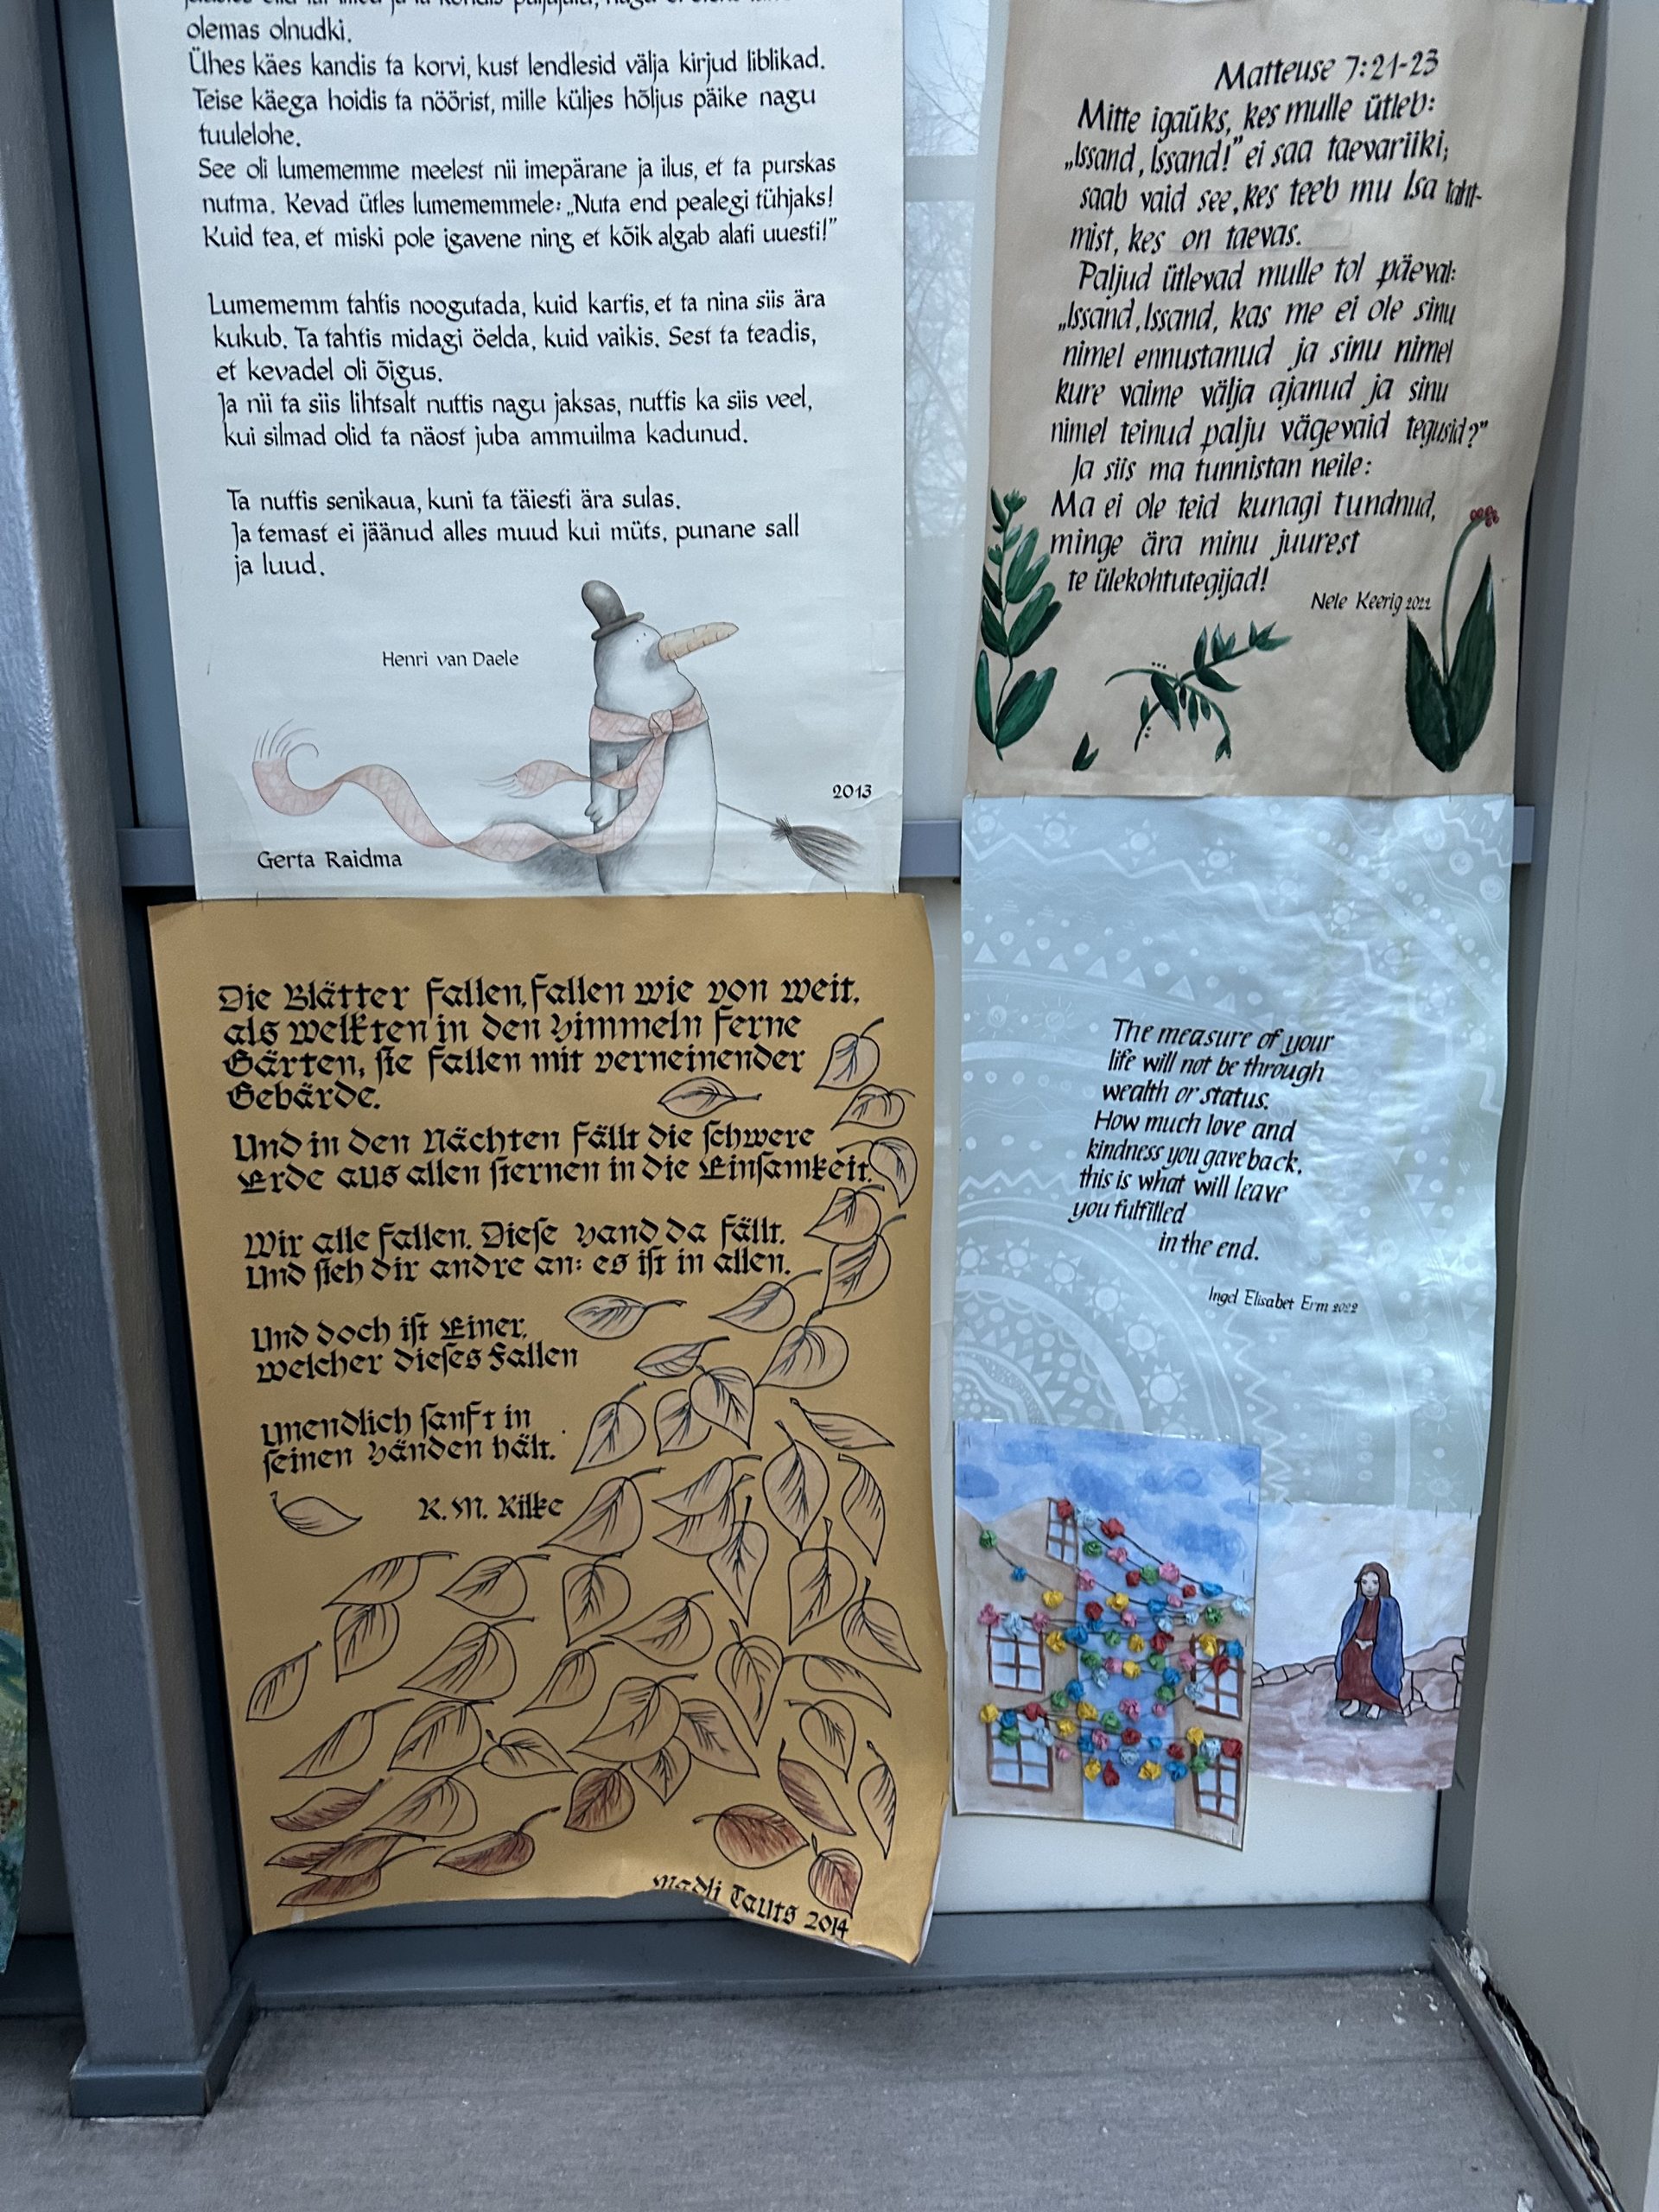 olemas olnudki.
Ühes käes kandis ta korvi, kust lendlesid välja kirjud liblikad.
Teise käega hoidis ta nöörist, mille küljes hõljus päike nagu
tuulelohe.
See oli lumememme meelest nii imepärane ja ilus, et ta purskas
nutma. Kevad ütles lumememmele: „Nuta end pealegi tühjaks!
Kuid tea, et miski pole igavene ning et kõik algab alati uuesti!”
Lumememm tahtis noogutada, kuid kartis, et ta nina siis ära
kukub. Ta tahtis midagi öelda, kuid vaikis. Sest ta teadis,
et kevadel oli õigus.
Ja nii ta siis lihtsalt nuttis nagu jaksas, nuttis ka siis veel,
kui silmad olid ta näost juba ammuilma kadunud.
Ta nuttis senikaua, kuni ta täiesti ära sulas.
Ja temast ei jäänud alles muud kui müts, punane sall
ja luud.
Henri van Daele
2013
Gerta Raidma
Matteuse 7:21-23
Mitte igaüks, kes mulle ütleb:
„Issand, Issand!” ei saa taevariiki,
saab vaid see, kes teeb mu Isa taht-
mist, kes on taevas.
Paljud ütlevad mulle tol päeval:
„Issand, Issand, kas me ei ole sinu
nimel ennustanud ja sinu nimel
kure vaime välja ajanud ja sinu
nimel teinud palju vägevaid tegusid?”
Ja siis ma tunnistan neile:
Ma ei ole teid kunagi tundnud,
minge ära minu juurest
te ülekohtutegijad!
Nele Keerig 2022
Die Blätter fallen, fallen wie von weit,
als welkten in den Himmeln ferne
Gärten; sie fallen mit verneinender
Gebärde.
Und in den Nächten fällt die schwere
Erde aus allen sternen in die Einsamkeit.
Wir alle fallen. Diese Hand da fällt.
Und sieh dir andre an: es ist in allen.
Und doch ist Einer,
welcher dieses Fallen
unendlich sanft in
seinen Händen hält.
R. M. Rilke
Madli Tauts 2014
The measure of your
life will not be through
wealth or status.
How much love and
kindness you gave back,
this is what will leave
you fulfilled
in the end.
Ingel Elisabet Erm 2022